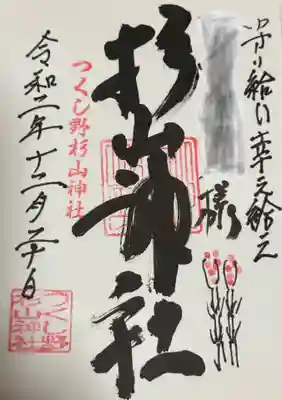 守り給い幸え給え
様
杉山神社
つくし野杉山神社
令和二年十二月二十日
つくし野杉山神社